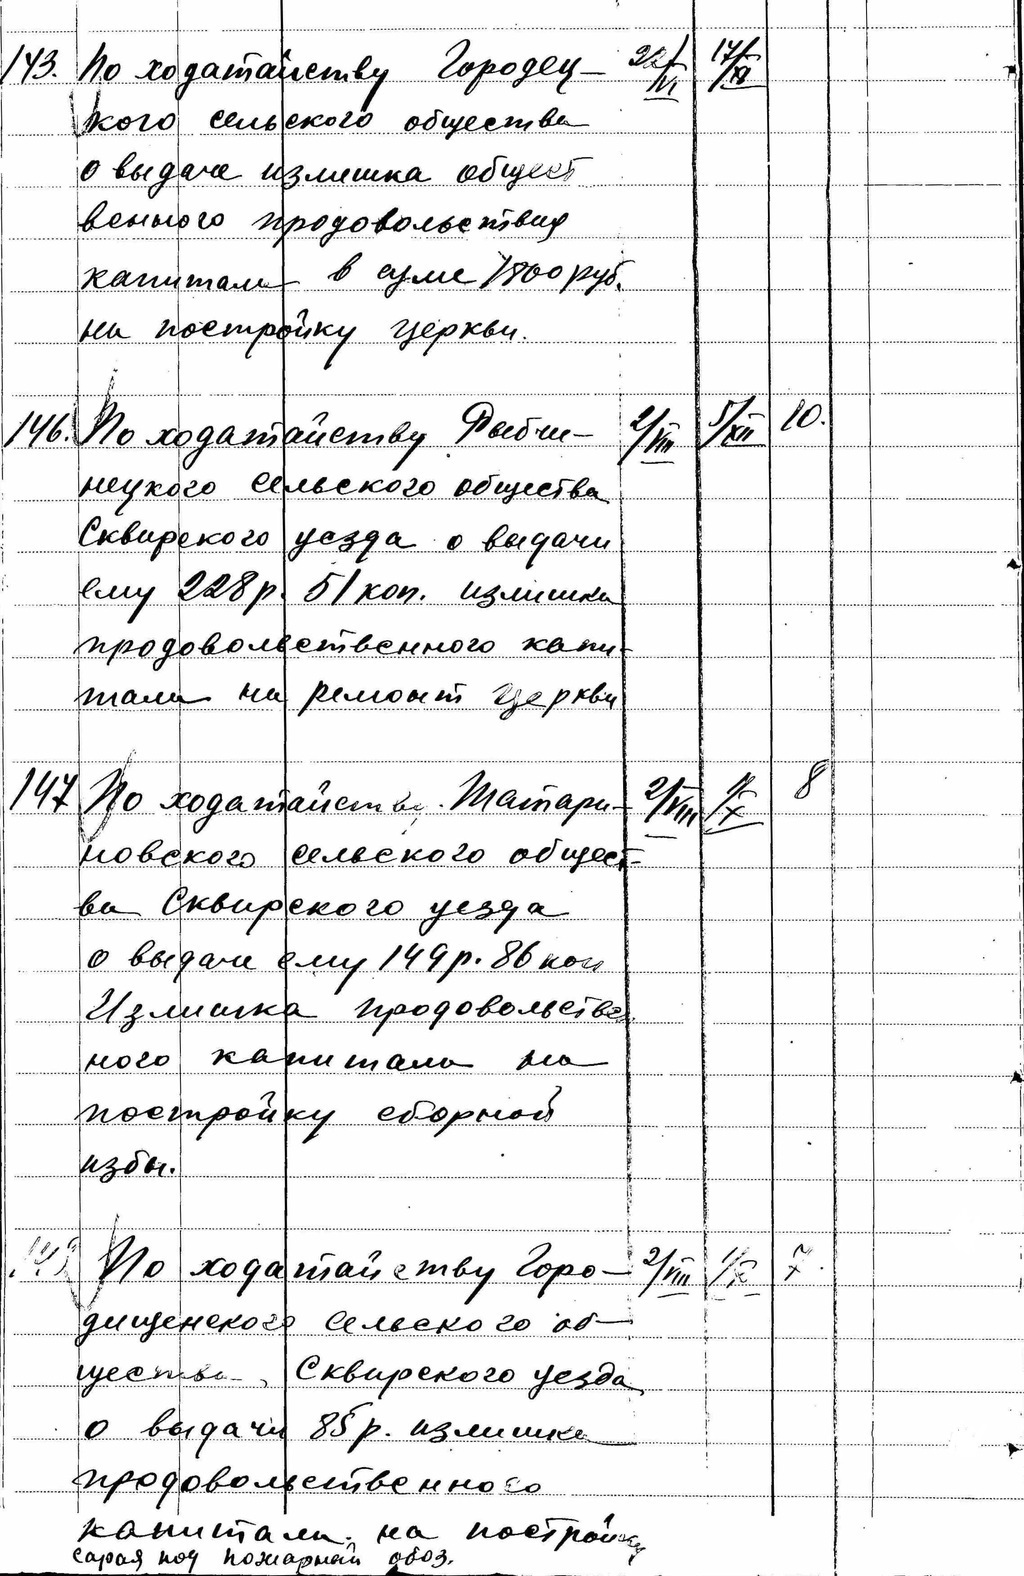 143. По ходатайству Городец- 22/VI 17/XI
кого сельского общества
о выдаче излишка общест
венного продовольствия
капитала в суме 1800 руб.
на постройку церкви.
146. По ходатайству Рыбчи- 2/VIII 5/XII 10.
нецкого сельского общества
Сквирского уезда о выдачи
ему 228 р. 51 коп. излишка
продовольственного капи-
тала на ремонт церкви
147 По ходатайству Татари- 2/VIII 8
новского сельского общест-
ва Сквирского уезда
о выдаче ему 149 р. 86 коп
Излишка продовольствен
ного капитала на
постройку сборной
избы.
По ходатайству Горо- 2/VIII 7
дищенского сельского об-
щества Сквирского уезда
о выдачи 85 р. излишка
продовольственного
капитала на постройку
сарая под пожарный обоз.